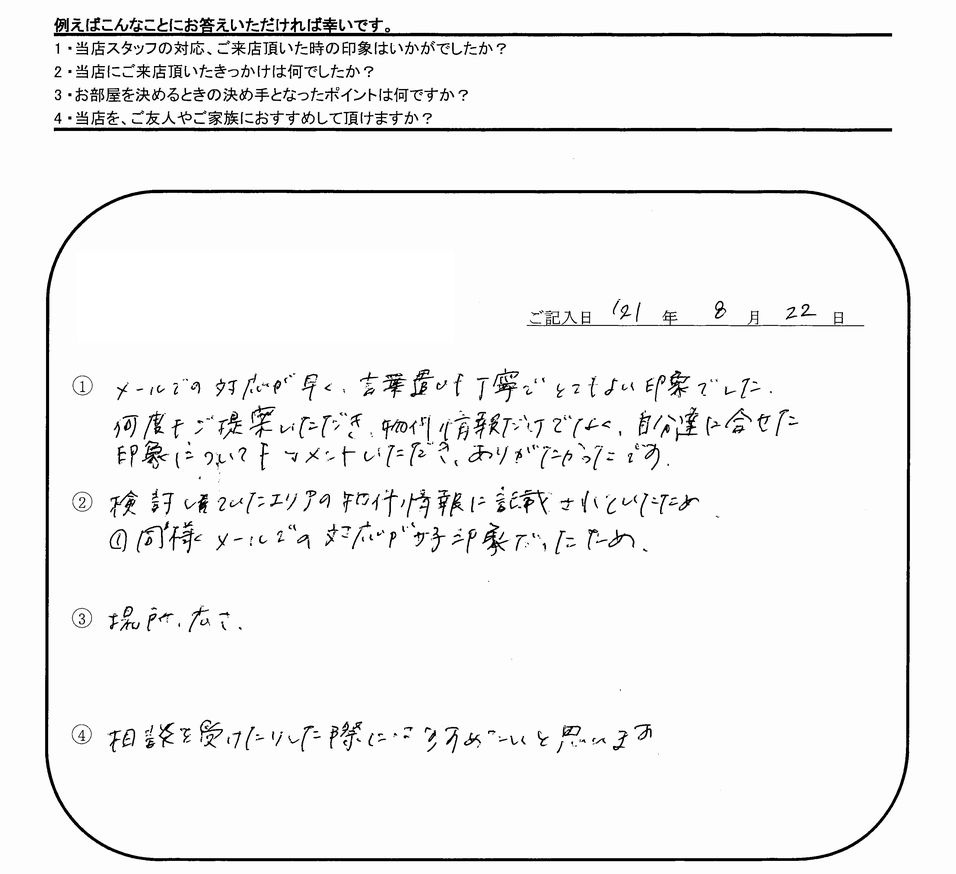 例えばこんなことにお答えいただければ幸いです。
1・当店スタッフの対応、ご来店頂いた時の印象はいかがでしたか？
2・当店にご来店頂いたきっかけは何でしたか？
3・お部屋を決めるときの決め手となったポイントは何ですか？
4・当店を、ご友人やご家族におすすめして頂けますか？
ご記入日 '21 年 8 月 22 日
① メールでの対応が早く、言葉遣いも丁寧でとてもよい印象でした。
何度もご提案いただき、物件情報だけでなく、自分達に合せた
印象についてもコメントいただき、ありがたかったです。
② 検討していたエリアの物件情報に記載されていたため
①同様、メールでの対応が好印象だったため、
③ 場所、広さ、
④ 相談を受けたりした際には と思います